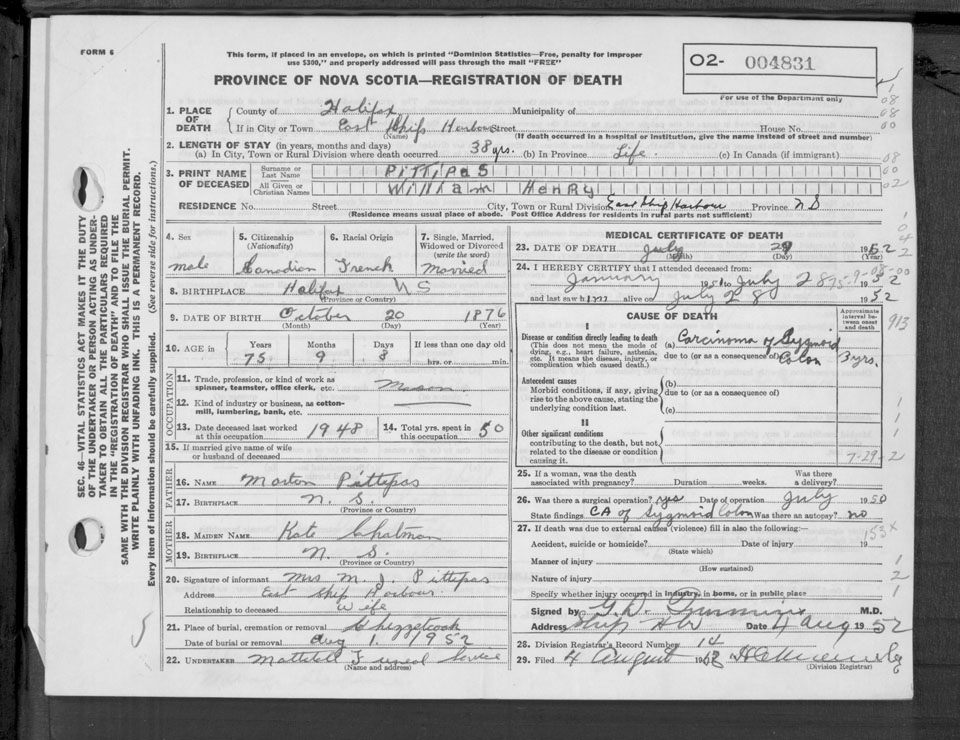 FORM 6
This form, if placed in an envelope, on which is printed "Dominion Statistics—Free, penalty for improper
use $300," and properly addressed will pass through the mail "FREE"
PROVINCE OF NOVA SCOTIA—REGISTRATION OF DEATH
O2- 004831
For use of the Department only
1. PLACE OF DEATH
County of Halifax Municipality of
If in City or Town East Ship Harbour Street House No.
(Name) (If death occurred in a hospital or institution, give the name instead of street and number)
2. LENGTH OF STAY (in years, months and days)
(a) In City, Town or Rural Division where death occurred 38 yrs. (b) In Province Life. (c) In Canada (if immigrant)
3. PRINT NAME OF DECEASED
Surname or Last Name PITTIPAS
All Given or Christian Names William Henry
RESIDENCE No. Street City, Town or Rural Division East Ship Harbour Province N S
(Residence means usual place of abode. Post Office Address for residents in rural parts not sufficient)
4. Sex male
5. Citizenship (Nationality) Canadian
6. Racial Origin French
7. Single, Married, Widowed or Divorced (write the word) Married
8. BIRTHPLACE Halifax N S
(Province or Country)
9. DATE OF BIRTH October 20 1876
(Month) (Day) (Year)
10. AGE in Years 75 Months 9 Days 8 If less than one day old hrs. or min.
OCCUPATION
11. Trade, profession, or kind of work as spinner, teamster, office clerk, etc. Mason
12. Kind of industry or business, as cotton-mill, lumbering, bank, etc.
13. Date deceased last worked at this occupation 1948
14. Total yrs. spent in this occupation 50
15. If married give name of wife or husband of deceased
FATHER
16. Name Morton Pittipas
17. Birthplace N. S.
(Province or Country)
MOTHER
18. Maiden Name Kate Chatman
19. Birthplace N. S.
(Province or Country)
20. Signature of informant Mrs M. J. Pittipas
Address East Ship Harbour
Relationship to deceased Wife
21. Place of burial, cremation or removal Chezzetcook
Date of burial or removal Aug 1. 1952
22. Undertaker Funeral Service
(Name and address)
MEDICAL CERTIFICATE OF DEATH
23. DATE OF DEATH July 29 1952
(Month) (Day) (Year)
24. I HEREBY CERTIFY that I attended deceased from:
January 1951 to July 28 1952
and last saw him alive on July 28 1952
CAUSE OF DEATH
Approximate interval between onset and death
I
Disease or condition directly leading to death
(This does not mean the mode of dying, e.g., heart failure, asthenia, etc. It means the disease, injury, or complication which caused death.)
(a) Carcinoma of Sygmoid
due to (or as a consequence of) Colon 3 yrs.
Antecedent causes
Morbid conditions, if any, giving rise to the above cause, stating the underlying condition last.
(b)
due to (or as a consequence of)
(c)
II
Other significant conditions
contributing to the death, but not related to the disease or condition causing it.
7-29-2
25. If a woman, was the death associated with pregnancy? Duration weeks. Was there a delivery?
26. Was there a surgical operation? yes Date of operation July 1950
State findings CA of Sygmoid Colon Was there an autopsy? no
27. If death was due to external causes (violence) fill in also the following:—
Accident, suicide or homicide? Date of injury 19
(State which)
Manner of injury
(How sustained)
Nature of injury
Specify whether injury occurred in industry, in home, or in public place
Signed by M.D.
Address Ship Hbr Date 4 Aug 1952
28. Division Registrar's Record Number 14
29. Filed 4 August 1952
(Division Registrar)
913
153 X
5
SEC. 46—VITAL STATISTICS ACT MAKES IT THE DUTY
OF THE UNDERTAKER OR PERSON ACTING AS UNDER-
TAKER TO OBTAIN ALL THE PARTICULARS REQUIRED
IN THE "REGISTRATION OF DEATH" AND TO FILE THE
SAME WITH THE DIVISION REGISTRAR WHO SHALL ISSUE THE BURIAL PERMIT.
WRITE PLAINLY WITH UNFADING INK. THIS IS A PERMANENT RECORD.
Every item of information should be carefully supplied. (See reverse side for instructions.)